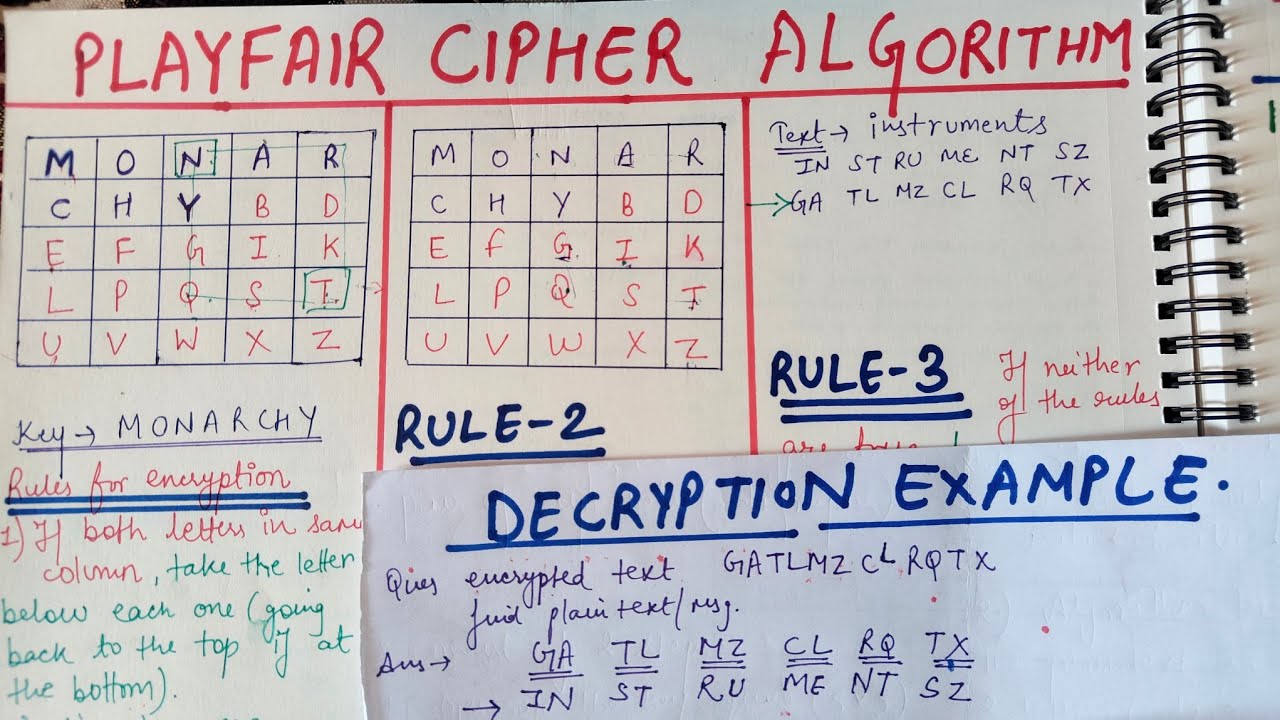 PLAYFAIR CIPHER ALGORITHM
M O N A R
C H Y B D
E F G I K
L P Q S T
U V W X Z
Key → MONARCHY
Rules for encryption
1) If both letters in same
column, take the letter
below each one (going
back to the top if at
the bottom).
M O N A R
C H Y B D
E f G I K
L P Q S T
U V W X Z
RULE-2
Text → instruments
IN ST RU ME NT SZ
→ GA TL MZ CL RQ TX
RULE-3
If neither
of the rules
are true
DECRYPTION EXAMPLE.
Ques encrypted text GATLMZCLRQTX
find plain text/msg.
Ans → GA TL MZ CL RQ TX
→ IN ST RU ME NT SZ